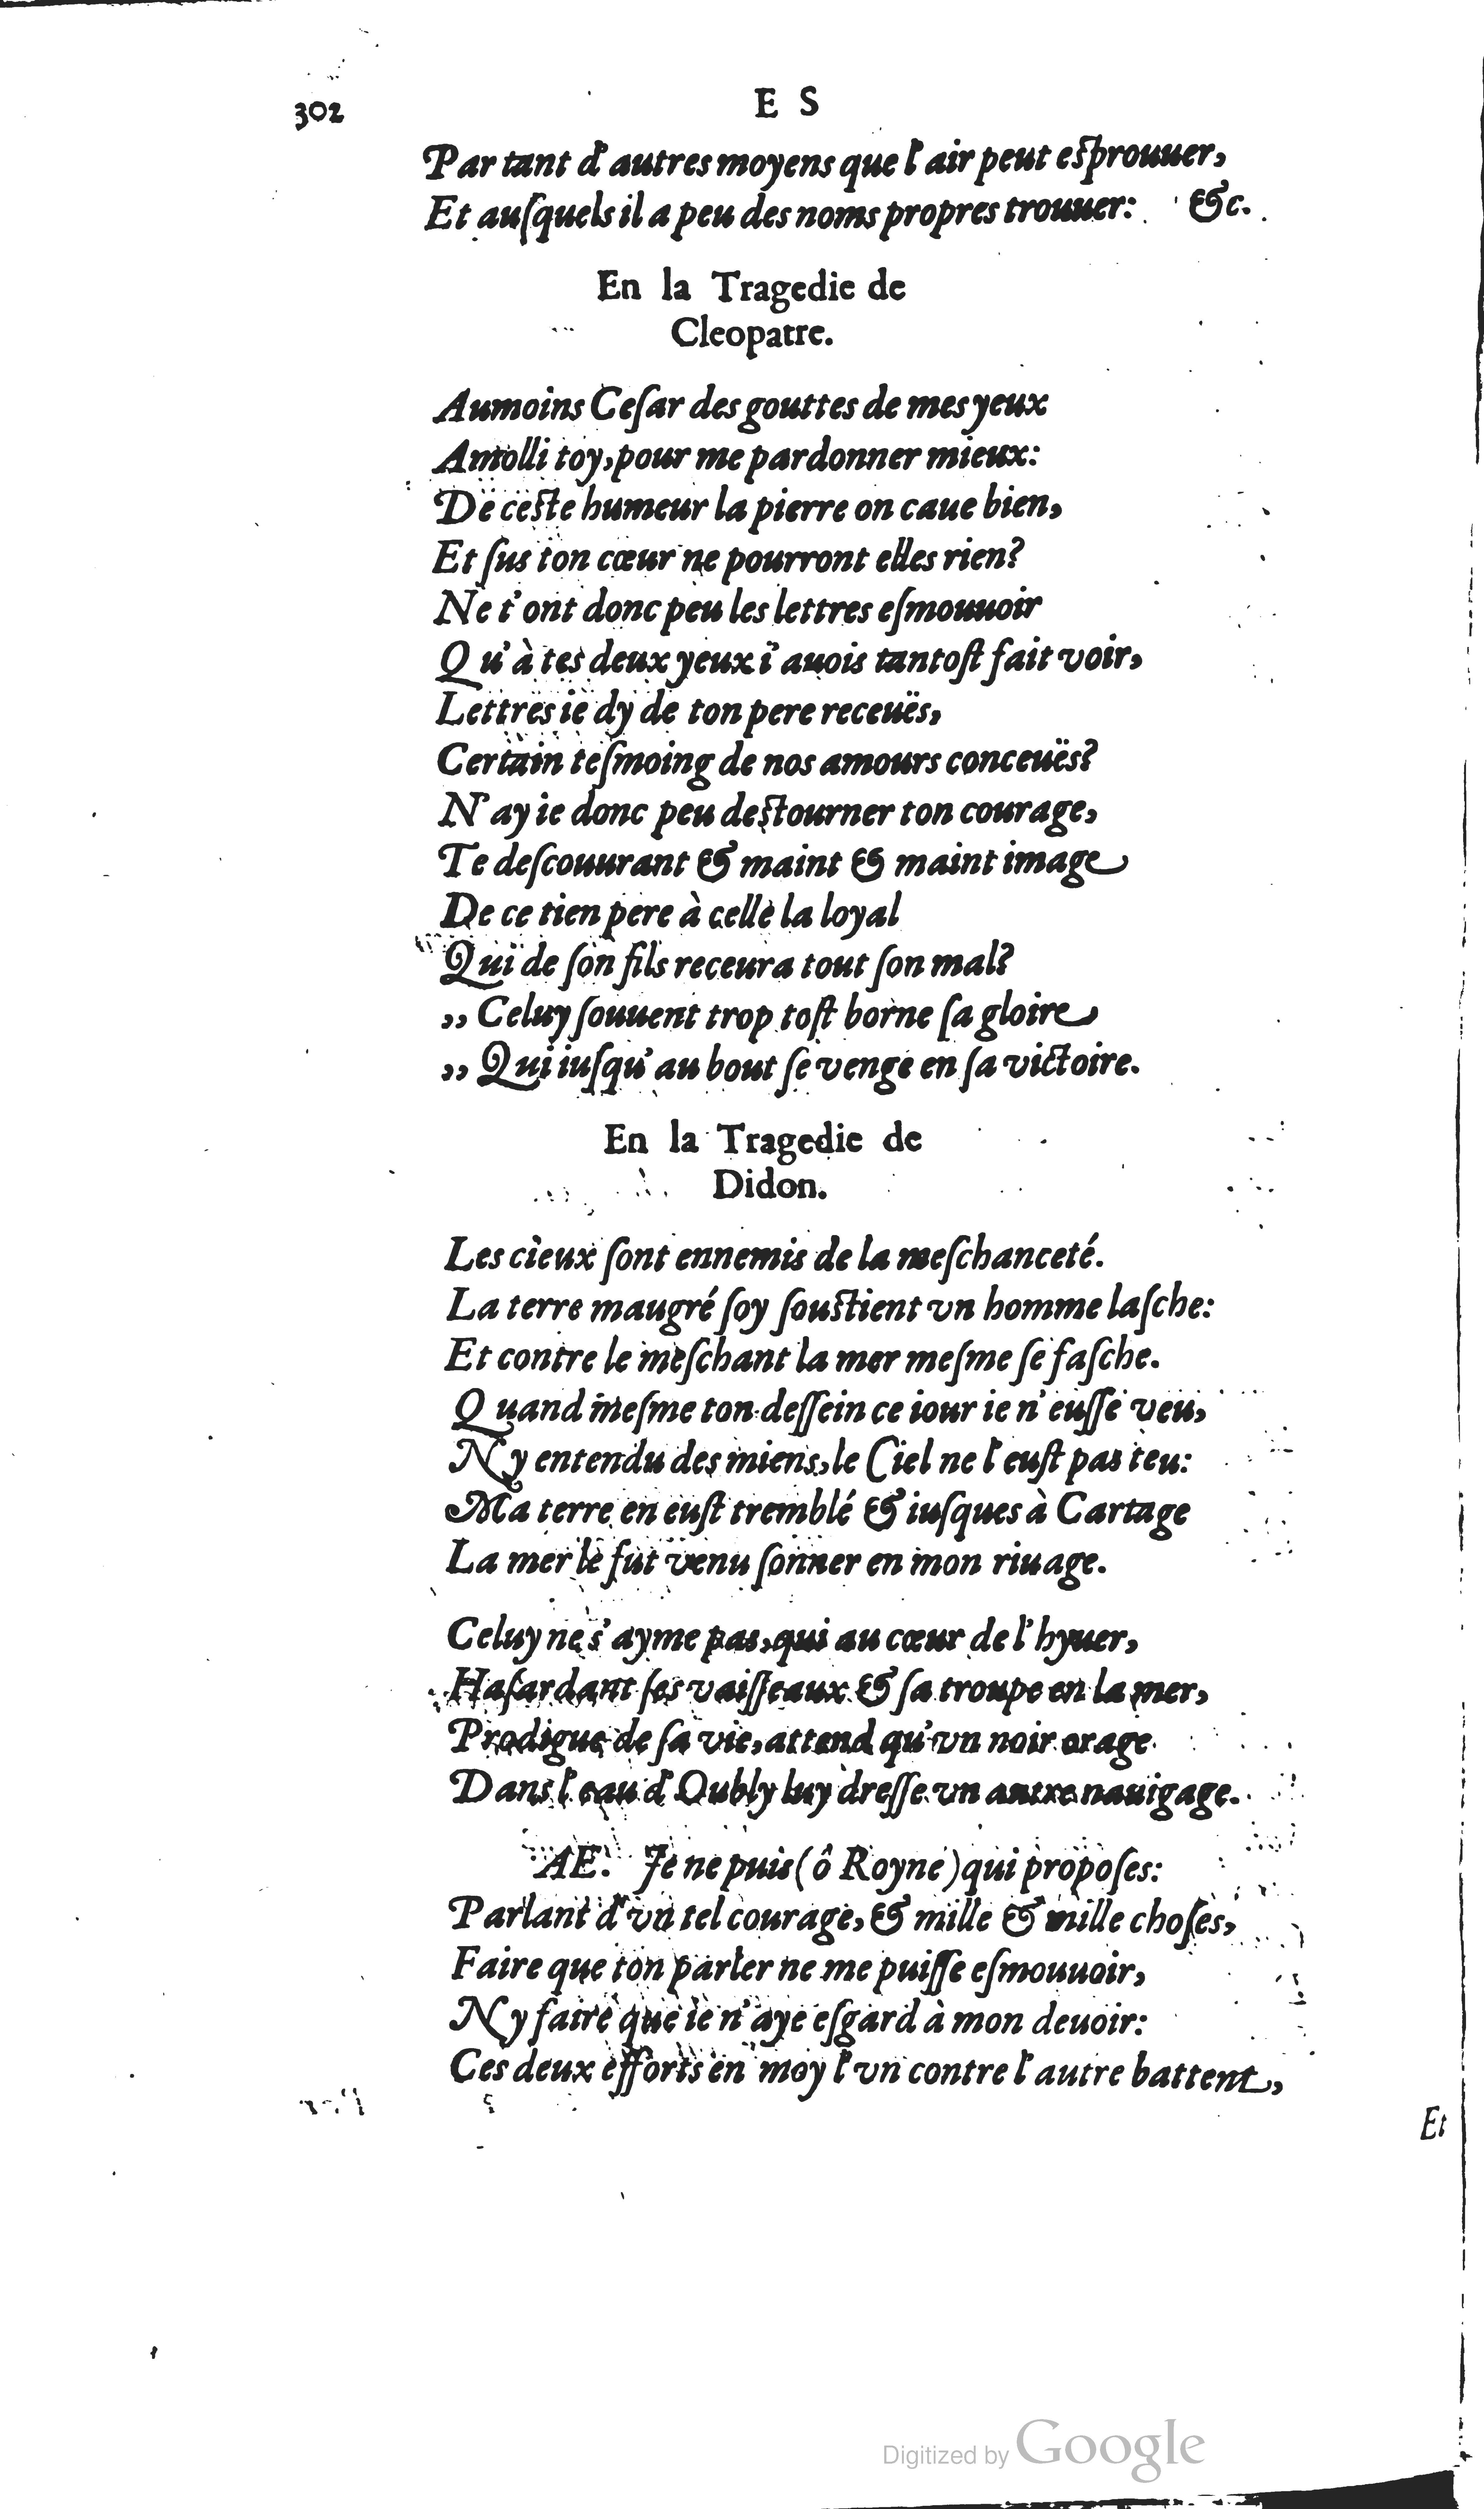 302 E S
Par tant d'autres moyens que l'air peut esprouuer,
Et auſquels il a peu des noms propres trouuer: &c.
En la Tragedie de
Cleopatre.
Aumoins Ceſar des gouttes de mes yeux
Amolli toy, pour me pardonner mieux:
De ceste humeur la pierre on caue bien,
Et ſus ton cœur ne pourront elles rien?
Ne t'ont donc peu les lettres eſmouuoir
Qu'à tes deux yeux i'auois tantoſt fait voir,
Lettres ie dy de ton pere receuës,
Certain teſmoing de nos amours conceuës?
N'ay ie donc peu destourner ton courage,
Te deſcouurant & maint & maint image
De ce tien pere à celle la loyal
Qui de ſon fils receura tout ſon mal?
,, Celuy ſouuent trop toſt borne ſa gloire
,, Qui iuſqu'au bout ſe venge en ſa victoire.
En la Tragedie de
Didon.
Les cieux ſont ennemis de la meſchanceté.
La terre maugré ſoy ſoustient vn homme laſche:
Et contre le meſchant la mer meſme ſe faſche.
Quand meſme ton deſſein ce iour ie n'euſſe veu,
Ny entendu des miens, le Ciel ne l'euſt pas teu:
Ma terre en euſt tremblé & iuſques à Cartage
La mer le fut venu ſonner en mon riuage.
Celuy ne s'ayme pas, qui au cœur de l'hyuer,
Haſardant ſes vaiſſeaux & ſa troupe en la mer,
Prodigue de ſa vie, attend qu'vn noir orage
Dans l'eau d'Oubly luy dreſſe vn autre nauigage.
AE. Je ne puis (ô Royne) qui propoſes:
Parlant d'vn tel courage, & mille & mille choſes,
Faire que ton parler ne me puiſſe eſmouuoir,
Ny faire que ie n'aye eſgard à mon deuoir:
Ces deux efforts en moy l'vn contre l'autre battent,
Et
Digitized by Google